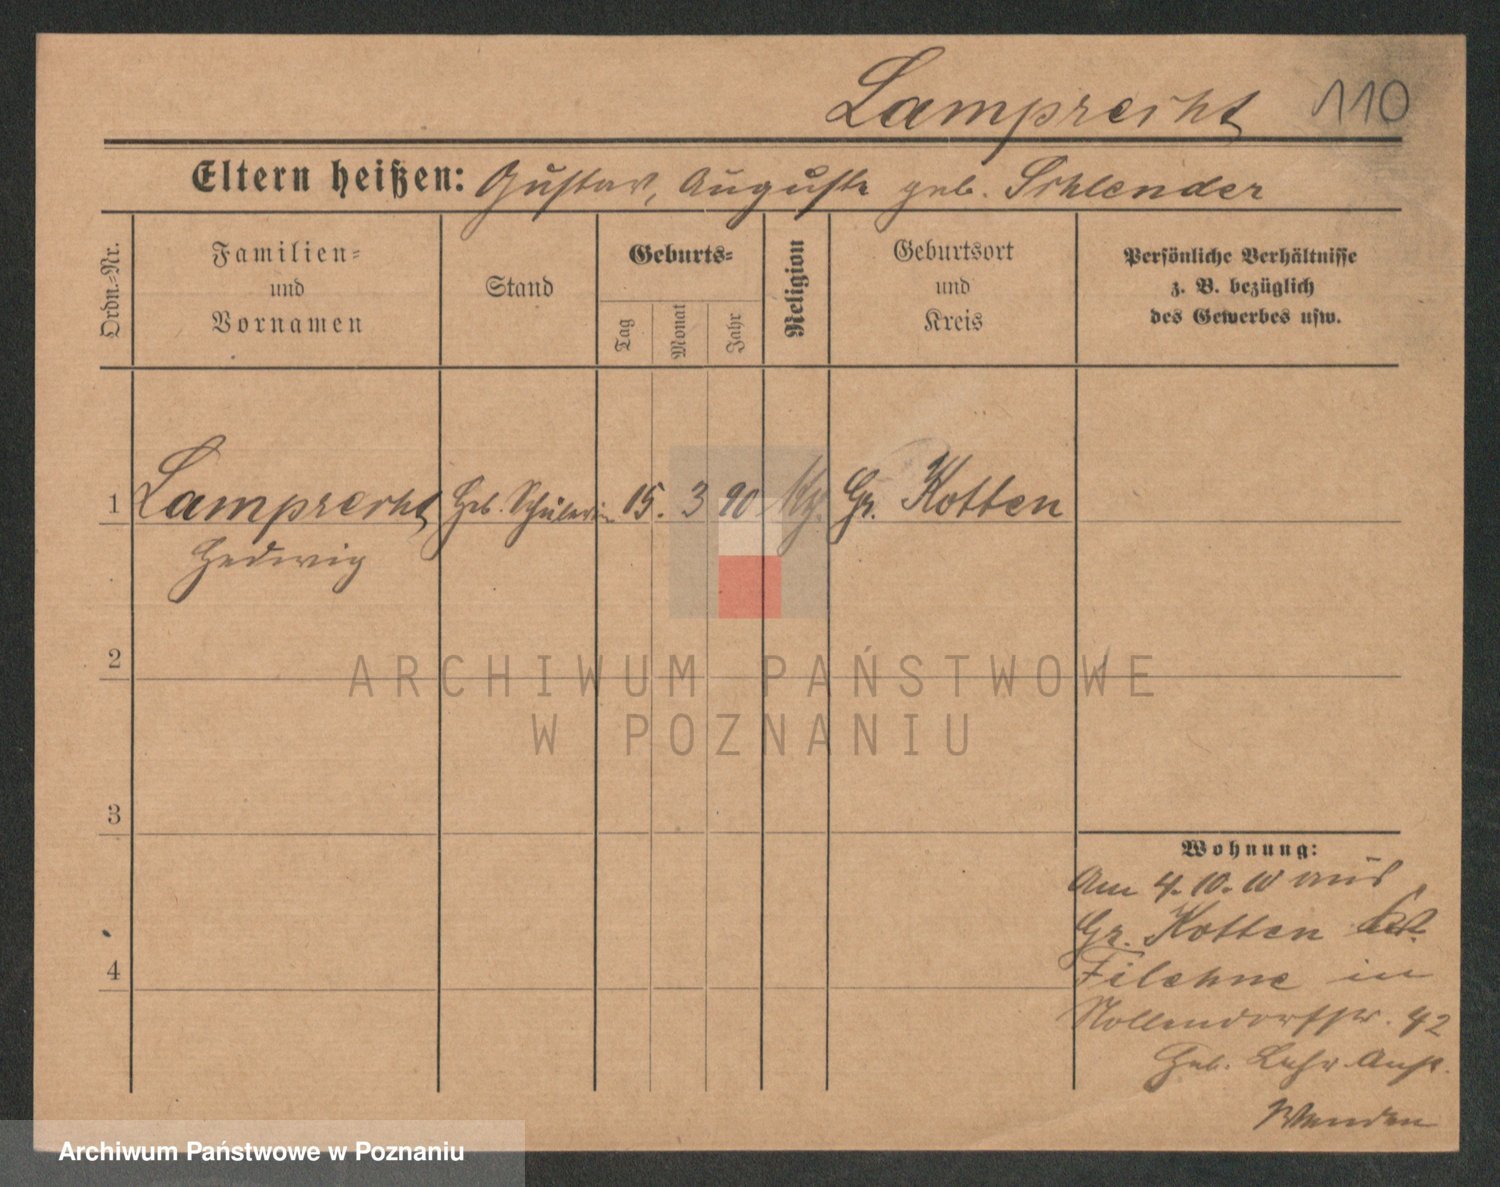 Lamprecht 110
Eltern heißen: Gustav, Auguste geb. Schlender
Ordn.-Nr.
Familien-
und
Vornamen
Stand
Geburts-
Tag
Monat
Jahr
Religion
Geburtsort
und
Kreis
Persönliche Verhältnisse
z. B. bezüglich
des Gewerbes usw.
1 Lamprecht Heb. Schülerin 15. 3 90 Gr. Kotten
Hedwig
2
3
4
Wohnung:
Am 4.10.10 aus
Gr. Kotten Krs.
Filehne in
Nollendorfstr. 42
Heb. Lehr-Anst.
ARCHIWUM PAŃSTWOWE
W POZNANIU
Archiwum Państwowe w Poznaniu